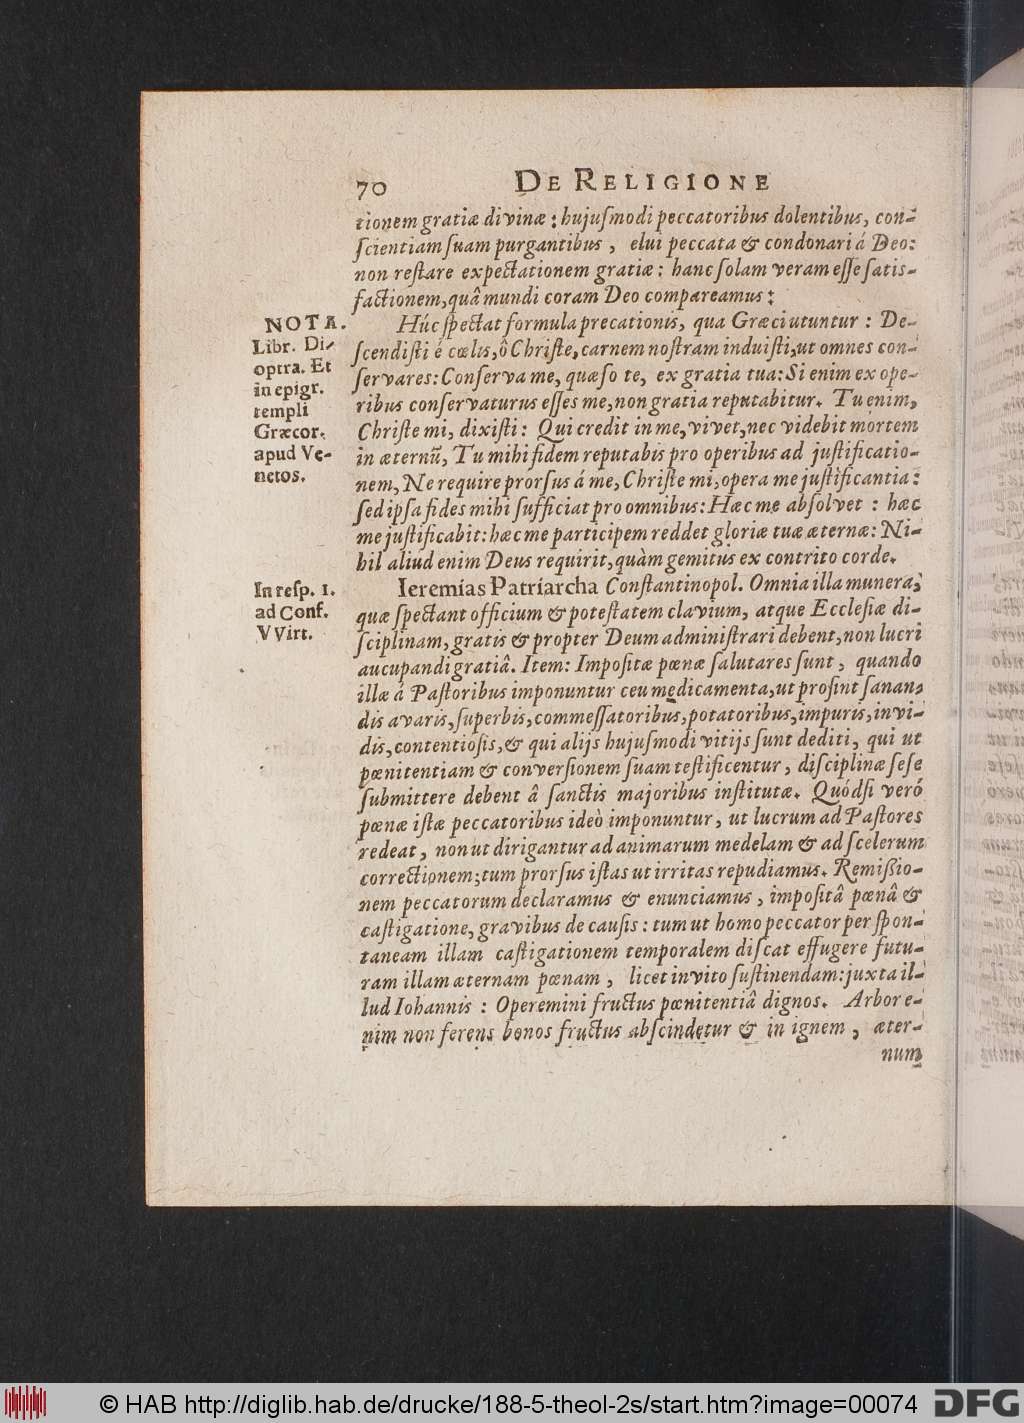 70 DE RELIGIONE
tionem gratiæ divinæ: hujuſmodi peccatoribus dolentibus, con-
ſcientiam ſuam purgantibus, elui peccata & condonari á Deo:
non reſtare expectationem gratiæ: hanc ſolam veram eſſe ſatis-
factionem, quâ mundi coram Deo compareamus:
NOTA.
Libr. Di-
optra. Et
in epigr.
templi
Græcor.
apud Ve-
netos.
Húc ſpectat formula precationis, qua Græci utuntur: De-
ſcendiſti é cœlis, ô Chriſte, carnem noſtram induiſti, ut omnes con-
ſervares: Conſerva me, quæſo te, ex gratia tua: Si enim ex ope-
ribus conſervaturus eſſes me, non gratia reputabitur. Tu enim,
Chriſte mi, dixiſti: Qui credit in me, vivet, nec videbit mortem
in æternũ, Tu mihi fidem reputabis pro operibus ad juſtificatio-
nem, Ne require prorſus á me, Chriſte mi, opera me juſtificantia:
ſed ipſa fides mihi ſufficiat pro omnibus: Hæc me abſolvet: hæc
me juſtificabit: hæc me participem reddet gloriæ tuæ æternæ: Ni-
hil aliud enim Deus requirit, quàm gemitus ex contrito corde.
In reſp. 1.
ad Conf.
VVirt.
Ieremias Patriarcha Conſtantinopol. Omnia illa munera,
quæ ſpectant officium & poteſtatem clavium, atque Eccleſiæ di-
ſciplinam, gratis & propter Deum adminiſtrari debent, non lucri
aucupandi gratiâ. Item: Impoſitæ pœnæ ſalutares ſunt, quando
illæ á Paſtoribus imponuntur ceu medicamenta, ut proſint ſanan-
dis avaris, ſuperbis, commeſſatoribus, potatoribus, impuris, invi-
dis, contentioſis, & qui alijs hujuſmodi vitijs ſunt dediti, qui ut
pœnitentiam & converſionem ſuam teſtificentur, diſciplinæ ſeſe
ſubmittere debent â ſanctis majoribus inſtitutæ. Quódſi veró
pœnæ iſtæ peccatoribus ideò imponuntur, ut lucrum ad Paſtores
redeat, non ut dirigantur ad animarum medelam & ad ſcelerum
correctionem; tum prorſus iſtas ut irritas repudiamus. Remiſſio-
nem peccatorum declaramus & enunciamus, impoſitâ pœnâ &
caſtigatione, gravibus de cauſis: tum ut homo peccator per ſpon-
taneam illam caſtigationem temporalem diſcat effugere futu-
ram illam æternam pœnam, licet invito ſuſtinendam: juxta il-
lud Iohannis: Operemini fructus pœnitentiâ dignos. Arbor e-
nim non ferens bonos fructus abſcindetur & in ignem, æter-
num
© HAB http://diglib.hab.de/drucke/188-5-theol-2s/start.htm?image=00074 DFG